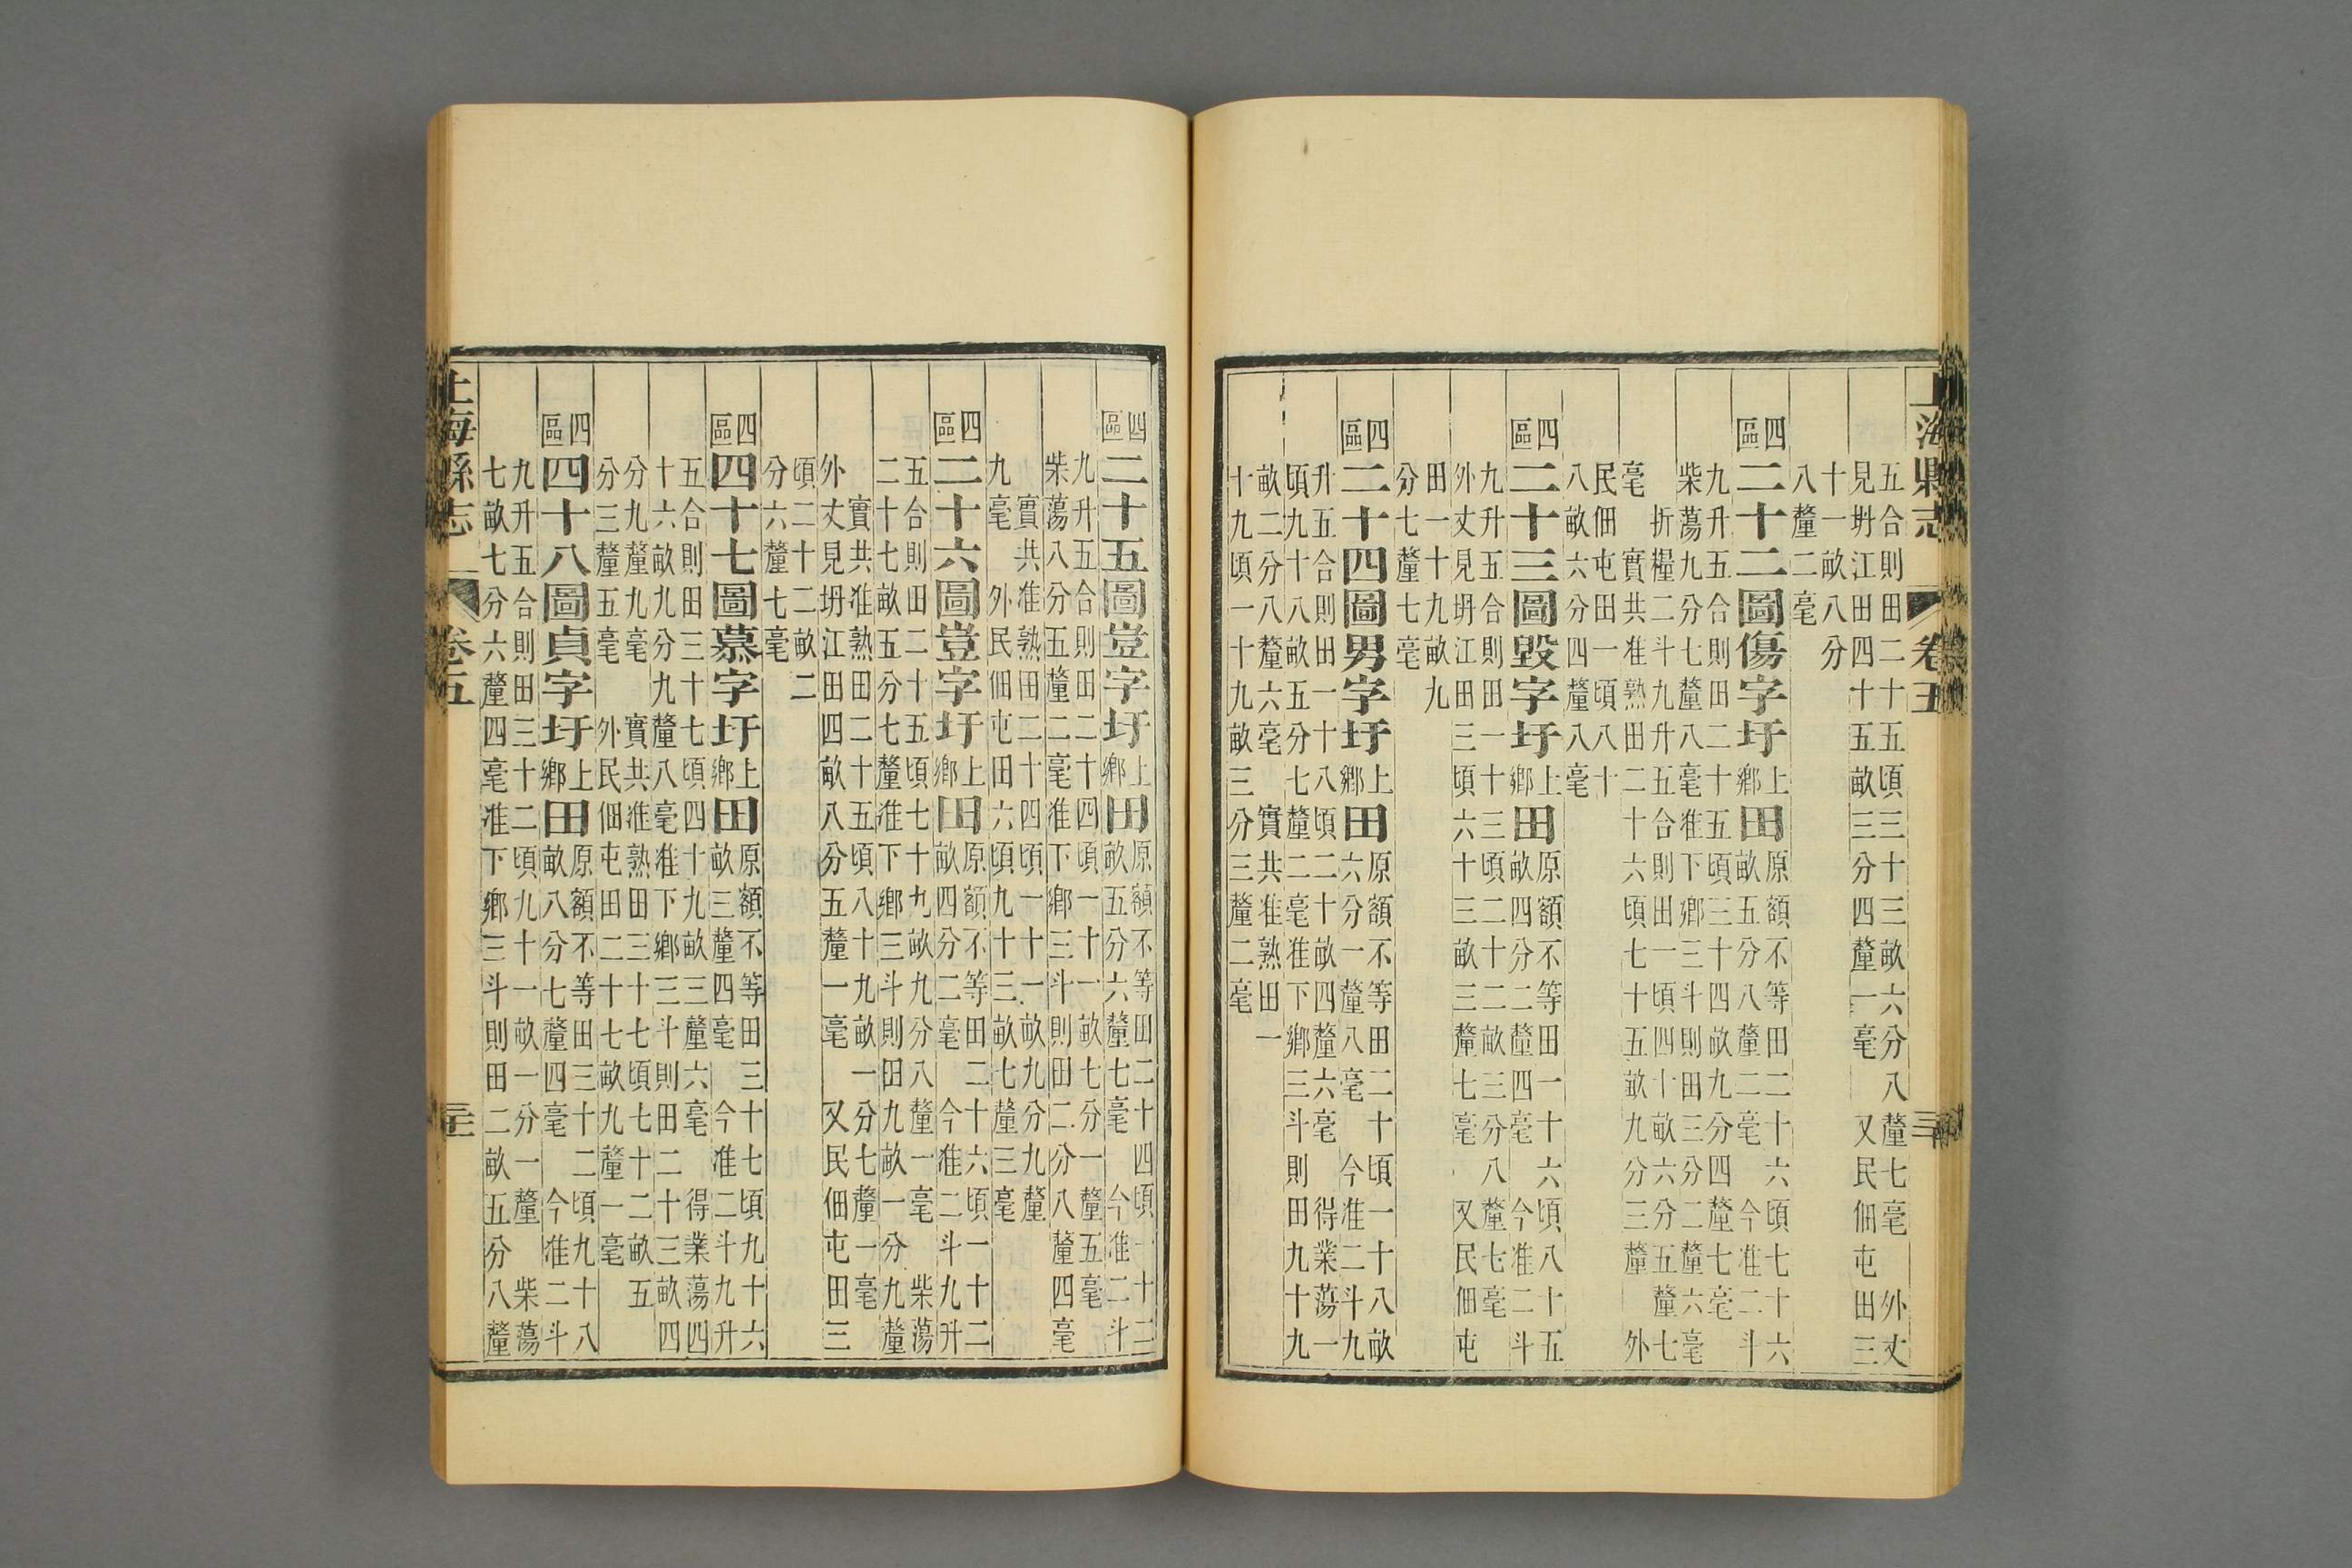 上海縣志 卷五
五合則田二十五頃三十三畝六分八釐七毫 外丈
見坍江田四十五畝三分四釐一毫 又民佃屯田三
十一畝八分
八釐二毫
四區二十二圖傷字圩上鄉田
原額不等田二十六頃七十六
畝五分八釐二毫 今准二斗
九升五合則田二十五頃三十四畝九分四釐七毫
柴蕩九分七釐八毫准下鄉三斗則田三分二釐六毫
折糧二斗九升五合則田一頃四十畝六分五釐七
毫 實共准熟田二十六頃七十五畝九分三釐 外
民佃屯田一頃八十
八畝六分四釐八毫
四區二十三圖毀字圩上鄉田
原額不等田一十六頃八十五
畝四分二釐四毫 今准二斗
九升五合則田一十三頃二十二畝三分八釐七毫
外丈見坍江田三頃六十三畝三釐七毫 又民佃屯
田一十九畝九
分七釐七毫
四區二十四圖男字圩上鄉田
原額不等田二十頃一十八畝
六分一釐八毫 今准二斗九
升五合則田一十八頃二十畝四釐六毫 得業蕩一
頃九十八畝五分七釐二毫准下鄉三斗則田九十九
畝二分八釐六毫 實共准熟田一
十九頃一十九畝三分三釐二毫
四區二十五圖豈字圩上鄉田
原額不等田二十四頃一十二
畝五分六釐七毫 今准二斗
九升五合則田二十四頃一十一畝七分一釐五毫
柴蕩八分五釐二毫准下鄉三斗則田二分八釐四毫
實共准熟田二十四頃一十一畝九分九釐
九毫 外民佃屯田六頃九十三畝七釐三毫
四區二十六圖豈字圩上鄉田
原額不等田二十六頃一十二
畝四分二毫 今准二斗九升
五合則田二十五頃七十九畝九分八釐一毫 柴蕩
二十七畝五分七釐准下鄉三斗則田九畝一分九釐
實共准熟田二十五頃八十九畝一分七釐一毫
外丈見坍江田四畝八分五釐一毫 又民佃屯田三
頃二十二畝二
分六釐七毫
四區四十七圖慕字圩上鄉田
原額不等田三十七頃九十六
畝三釐四毫 今准二斗九升
五合則田三十七頃四十九畝三釐六毫 得業蕩四
十六畝九分九釐八毫准下鄉三斗則田二十三畝四
分九釐九毫 實共准熟田三十七頃七十二畝五
分三釐五毫 外民佃屯田二十七畝九釐一毫
四區四十八圖貞字圩上鄉田
原額不等田三十二頃九十八
畝八分七釐四毫 今准二斗
九升五合則田三十二頃九十一畝一分一釐 柴蕩
七畝七分六釐四毫准下鄉三斗則田二畝五分八釐
上海縣志 卷五